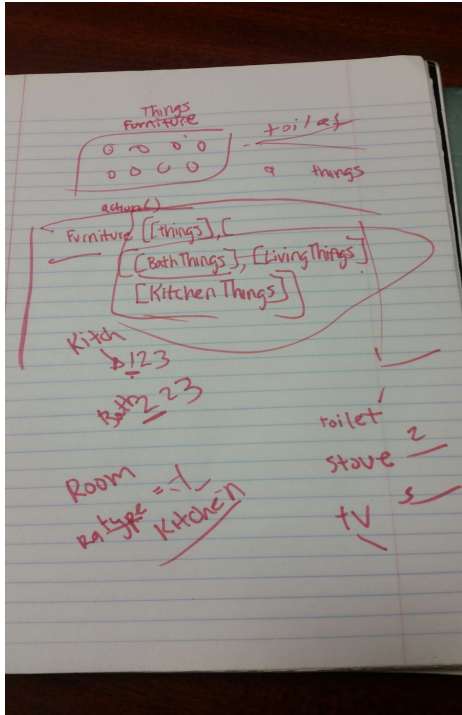 Things
Furniture
toilet
9 things
action()
Furniture [[things],[
[BathThings], [LivingThings]
[Kitchen Things]]
Kitch
123
Bath 223
toilet
Stove 2
Room
type = 1
Kitchen
TV